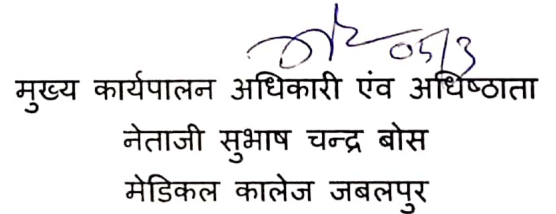 05/3
मुख्य कार्यपालन अधिकारी एंव अधिष्ठाता
नेताजी सुभाष चन्द्र बोस
मेडिकल कालेज जबलपुर